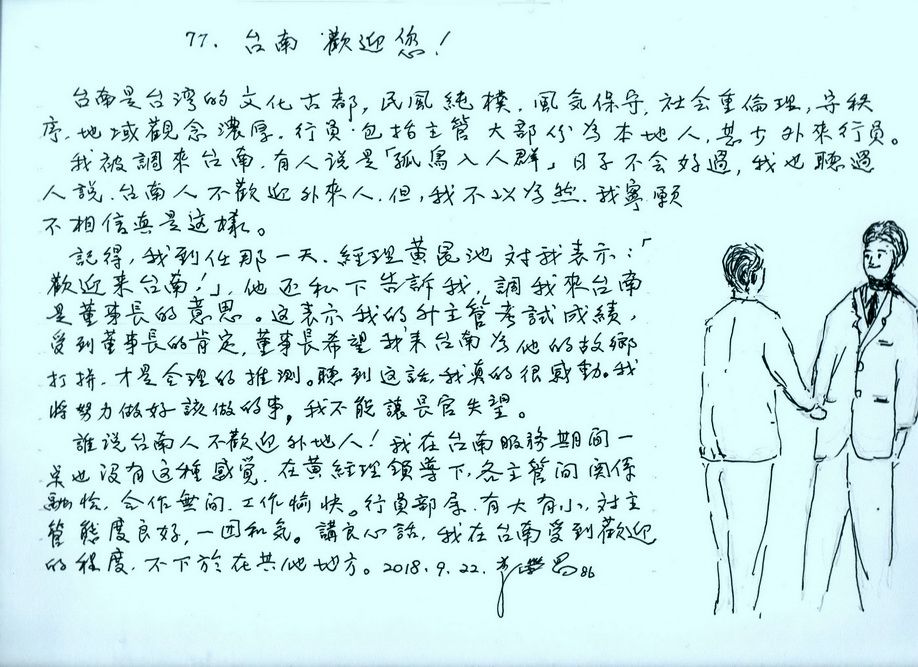 77. 台南 歡迎您!
台南是台湾的文化古都, 民風純樸, 風气保守, 社会重倫理, 守秩
序, 地域觀念濃厚, 行員包括主管 大部份為本地人, 甚少外來行員。
我被調來台南, 有人说是「孤鳥入人群」日子不会好過, 我也聽過
人説, 台南人不歡迎外來人. 但, 我不以為然. 我寧願
不相信真是这樣。
記得, 我到任那一天, 經理黃昆池 対我表示:「
歡迎来台南!」, 他还私下告訴我, 調我來台南
是董事長的意思。这表示我的升主管考試成績,
受到董事長的肯定, 董事長希望我来台南為他的故鄉
打拼, 才是合理的推測。聽到这話, 我真的很感動。我
將努力做好該做的事, 我不能讓長官失望。
誰说台南人不歡迎外地人! 我在台南服務期間一
点也没有这種感覚. 在黃經理領導下, 各主管间関係
融恰, 合作無间, 工作愉快。行員部屬, 有大有小, 对主
管態度良好, 一团和気。講良心話, 我在台南受到歡迎
的程度, 不下於在其他地方。2018.9.22. 86